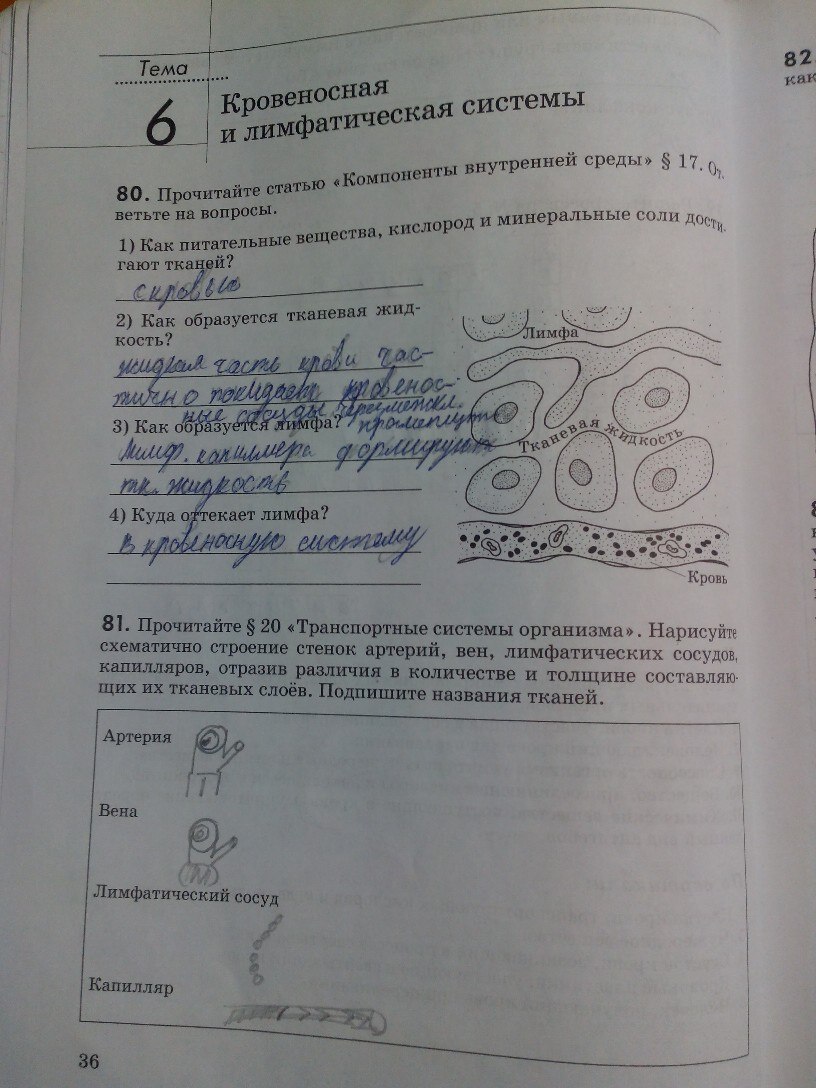 Тема
6
Кровеносная
и лимфатическая системы
82.
как
80. Прочитайте статью «Компоненты внутренней среды» § 17. От-
ветьте на вопросы.
1) Как питательные вещества, кислород и минеральные соли дости-
гают тканей?
с кровью
2) Как образуется тканевая жид-
кость?
жидкая часть крови час-
тично покидает кровенос-
ные сосуды
3) Как образуется лимфа?
Лимф. капилляра формируют
тк. жидкость
4) Куда оттекает лимфа?
в кровеносную систему
Лимфа
Тканевая жидкость
Кровь
81. Прочитайте § 20 «Транспортные системы организма». Нарисуйте
схематично строение стенок артерий, вен, лимфатических сосудов,
капилляров, отразив различия в количестве и толщине составляю-
щих их тканевых слоёв. Подпишите названия тканей.
Артерия
Вена
Лимфатический сосуд
Капилляр
36